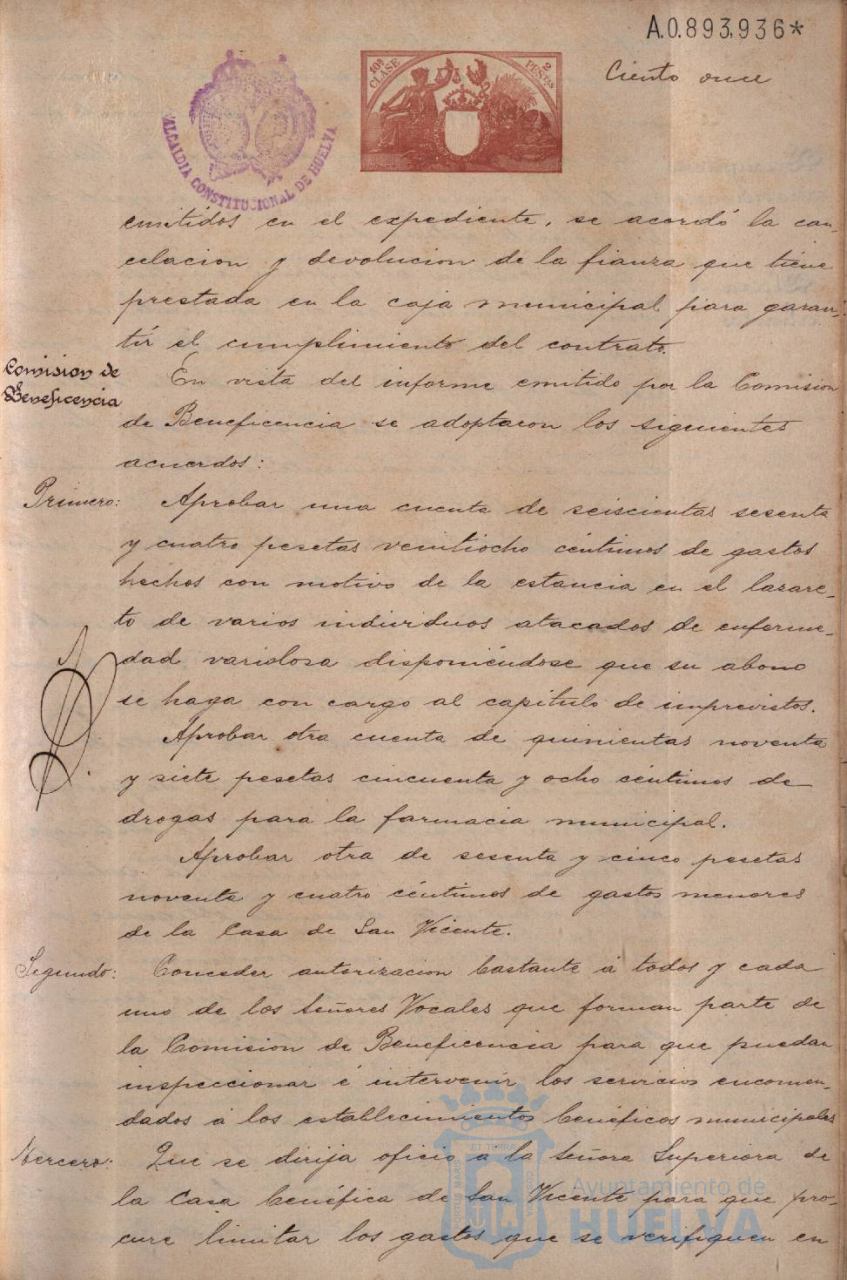 A.0.893,936*
10ª CLASE
2 PESETAS
Ciento once
ALCALDIA CONSTITUCIONAL DE HUELVA
emitidos en el expediente, se acordó la can-
celacion y devolucion de la fianza que tiene
prestada en la caja municipal para garan-
tir el cumplimiento del contrato.
Comision de
Beneficencia
En vista del informe emitido por la Comision
de Beneficencia se adoptaron los siguientes
acuerdos:
Primero: Aprobar una cuenta de seiscientas sesenta
y cuatro pesetas veintiocho céntimos de gastos
hechos con motivo de la estancia en el lazare-
to de varios individuos atacados de enferme-
dad variolosa disponiéndose que su abono
se haga con cargo al capitulo de imprevistos.
Aprobar otra cuenta de quinientas noventa
y siete pesetas cincuenta y ocho céntimos de
drogas para la farmacia municipal.
Aprobar otra de sesenta y cinco pesetas
noventa y cuatro céntimos de gastos menores
de la Casa de San Vicente.
Segundo: Conceder autorizacion bastante á todos y cada
uno de los Señores Vocales que forman parte de
la Comision de Beneficencia para que puedan
inspeccionar é intervenir los servicios encomen-
dados á los establecimientos benéficos municipales
Tercero: Que se dirija oficio a la Señora Superiora de
la Casa benéfica de San Vicente para que pro-
cure limitar los gastos que se verifiquen en
Ayuntamiento de
HUELVA